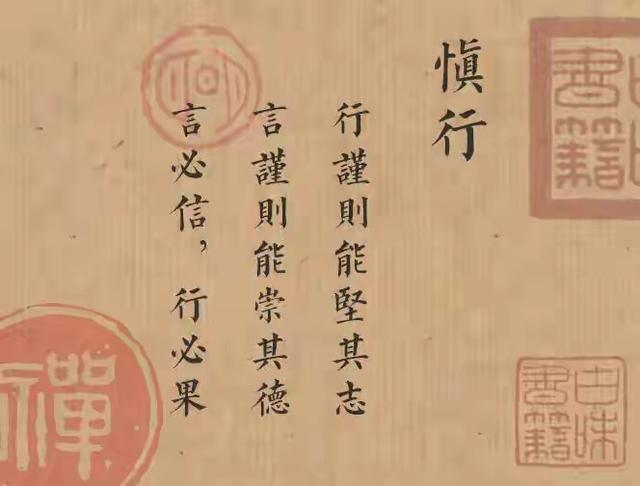 慎行
行謹則能堅其志
言謹則能崇其德
言必信，行必果
書籍
古味書籍
禪